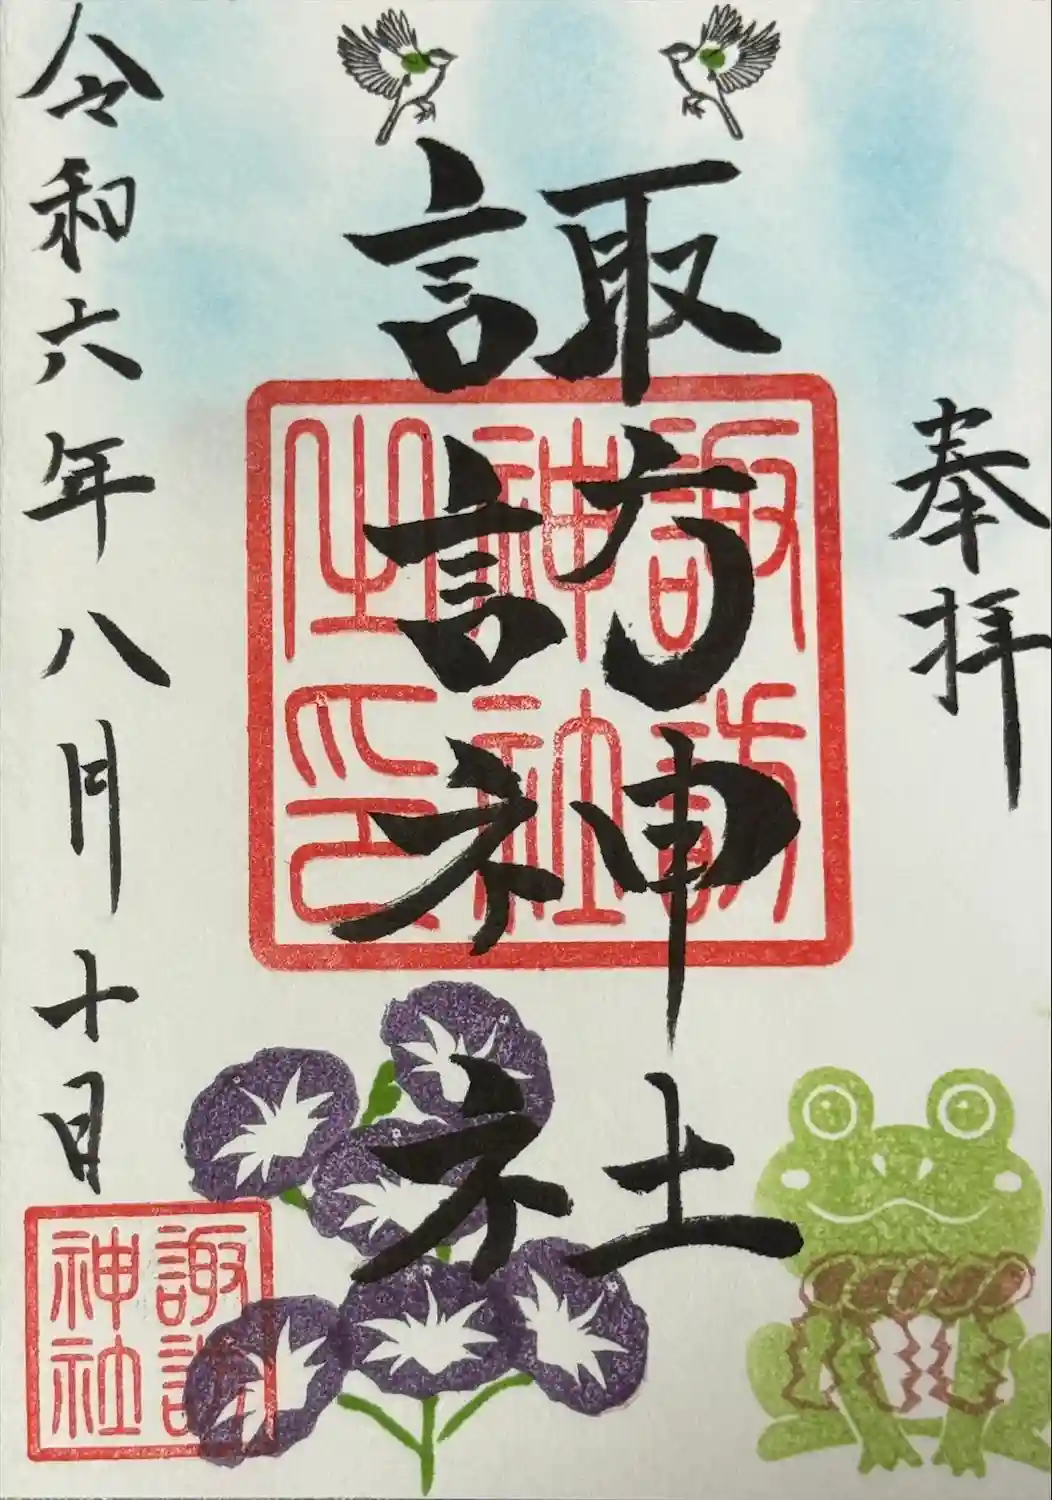 奉拝
諏訪神社
諏訪神社之印
令和六年八月十日
諏訪神社